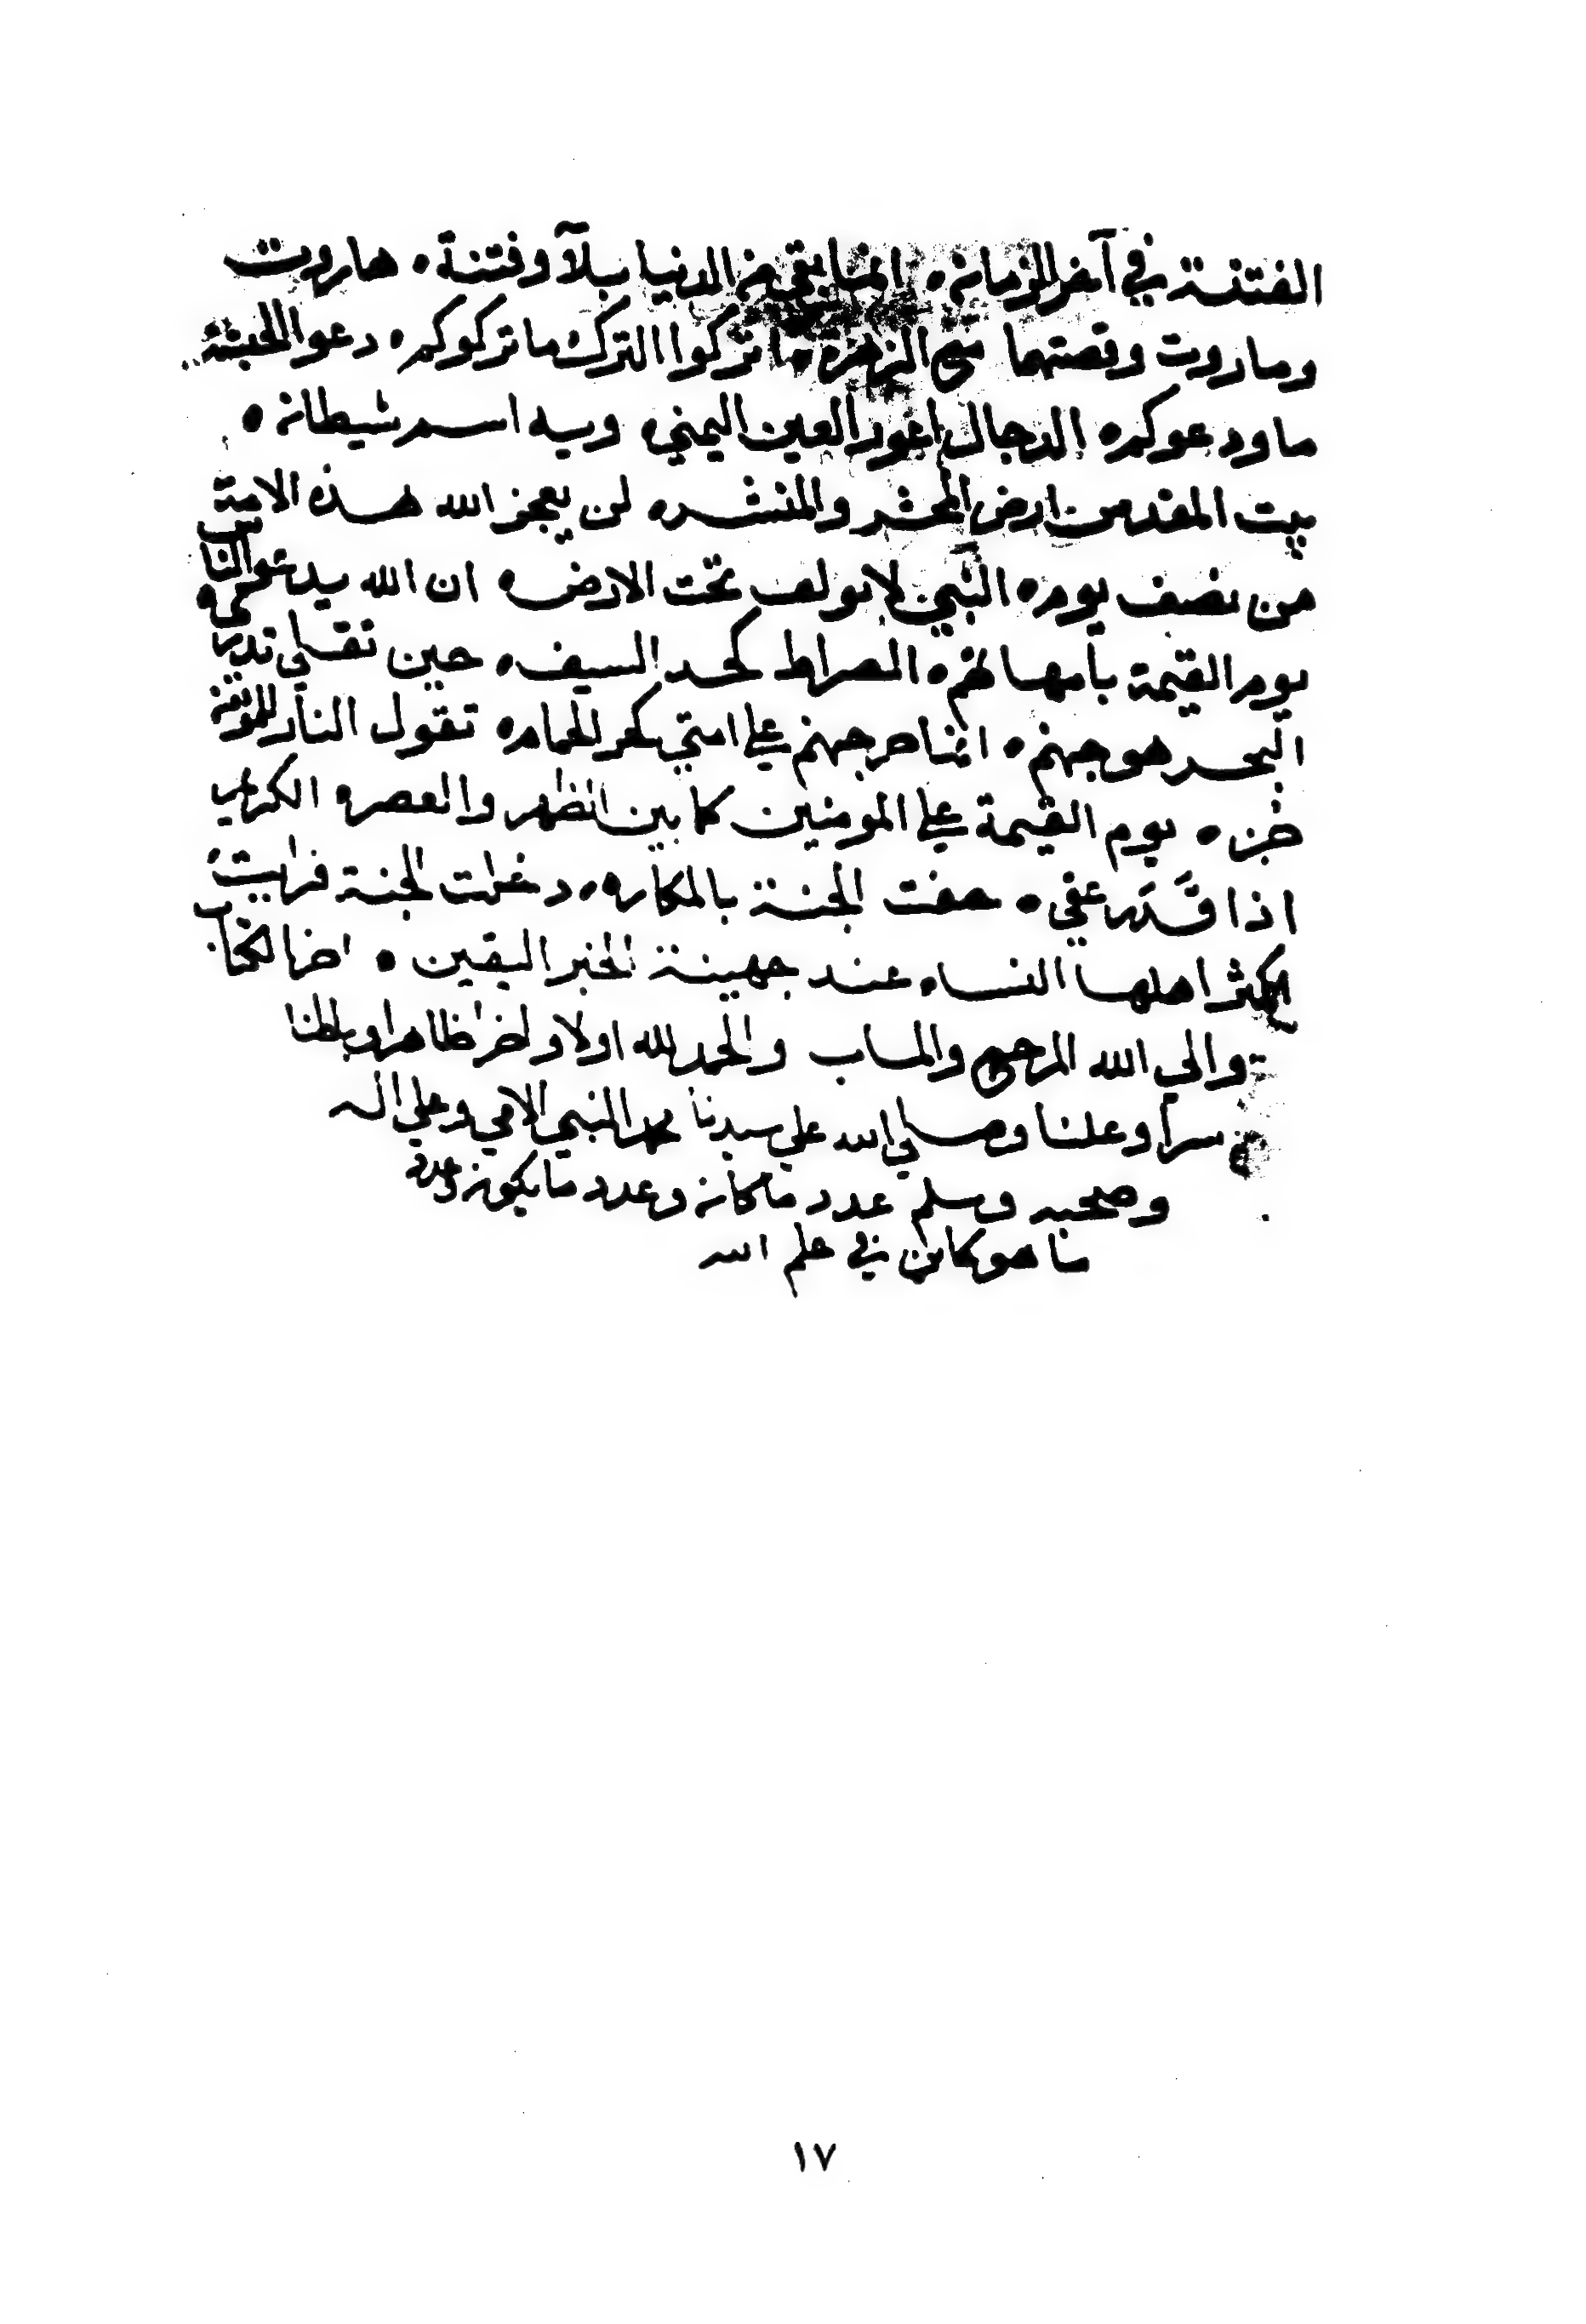 الفتنة في آخر الزمان ه انما بقي من الدنيا بلآ وفتنة ه هاروت
وماروت وقصتهما مع الزهرة ه اتركوا الترك ما تركوكم ه دعوا الحبشة
ما ودعوكم ه الدجال اعور العين اليمني ه ويه اسم شيطان ه
بيت المقدس ارض المحشر والمنشر ه لن يعجز الله هذه الامة
من نصف يوم ه النبي لا يولف تحت الارض ه ان الله يدعو الناس
يوم القيمة بأمهاتهم ه الصراط كحد السيف ه حين تقلي تدري
البحر هو جهنم ه انما حر جهنم علي امتي كحر الحمام ه تقول النار للمؤمن
جز ه يوم القيمة علي المومنين كما بين الظهر والعصر ه الكريم
اذا قَدَر عفي ه حفت الجنة بالمكاره ه دخلت الجنة فرايت
اكثر اهلها النساء ه عند جهينة الخبر اليقين ه اخر الكتاب
والي الله المرجع والماب والحمد لله اولا واخرا ظاهرا وباطنا
سرا وعلنا وصلي الله علي سيدنا محمد النبي الامي وعلي اله
وصحبه وسلم عدد ما كان وعدد ما يكون وعدد
ما هو كاين في علم الله
١٧